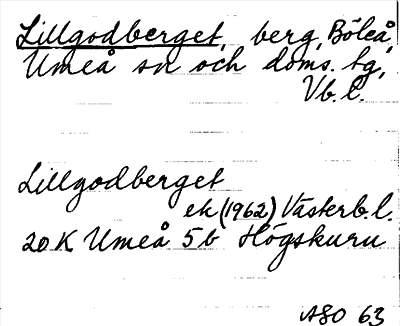 Lillgodberget, berg, Böleå,
Umeå sn och doms. tg,
Vb. l.
Lillgodberget
ek (1962) Västerb. l.
20K Umeå 5b Högskuru
ASO 63